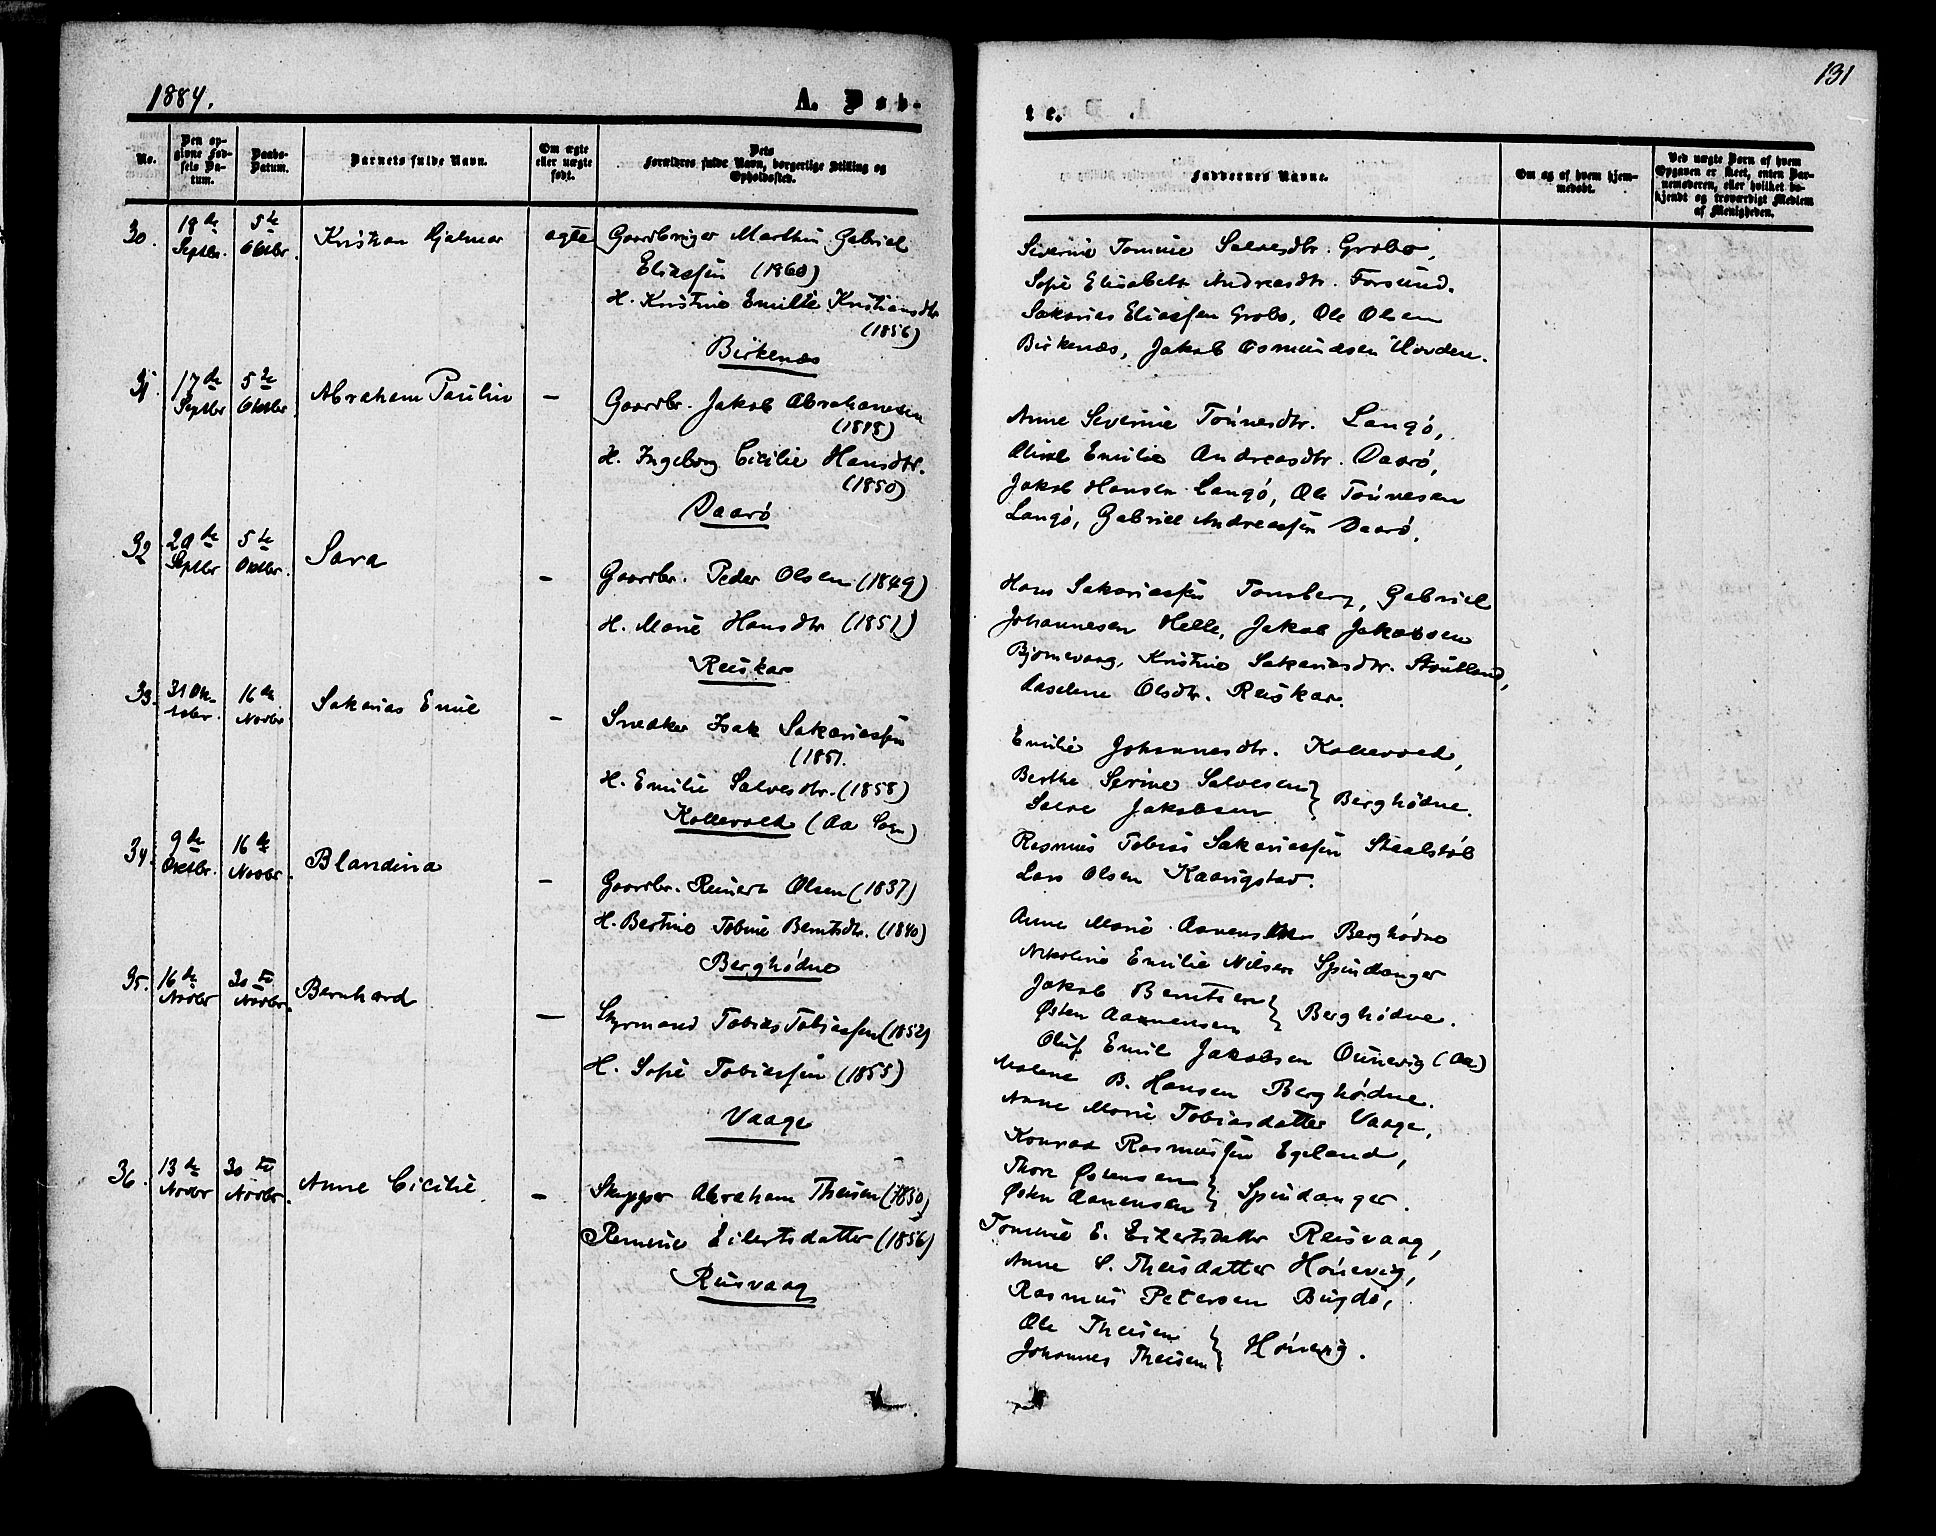 1884.
A. Døb-
No.
Den op-
givne Fød-
sels Da-
tum.
Daabs-
Datum.
Barnets fulde Navn.
Om ægte
eller uægte
født.
Dets
Forældres fulde Navn, borgerlige Stilling og
Opholdssted.
30.
18de
Septbr.
5te
Oktbr.
Kristian Hjalmar
ægte
Gaardbruger Marthin Gabriel
Eliassen (1860)
H. Kristine Emilie Kristiansdtr.
(1856)
Birkenæs
31.
17de
Septbr
5te
Oktbr.
Abraham Paulin
—
Gaardbr. Jakob Abrahamsen
(1818)
H. Ingeborg Cicilie Hansdtr.
(1850)
Daarø
32
20de
Septbr
5te
Oktbr.
Sara
—
Gaardbr. Peder Olsen (1849)
H. Marie Hansdtr (1851)
Reiskar
33.
31 Ok-
tober.
16de
Novbr
Sakarias Emil
—
Snedker Isak Sakariassen
(1851.
H. Emilie Salvesdtr. (1858)
Kollevold (Aa Sogn)
34.
9de
Oktbr.
16de
Novbr.
Blandina
—
Gaardbr. Reinert Olsen (1837)
H. Bertine Tobine Berntsdtr. (1840)
Berghødne
35.
16de
Novbr
30te
Novbr.
Bernhard
—
Styrmand Tobias Tobiassen (1852)
H. Sofie Tobiassen (1855)
Vaage
36.
13de
Novbr
30te
Novbr.
Anne Cicilie
—
Skipper Abraham Theisen (1830)
Remine Eilertsdatter (1856)
Reisvaag
131
te.
Faddernes Navne.
Om og af hvem hjem-
medøbt.
Ved uægte Børn af hvem
Opgaven er skeet, enten Bar-
nemoderen, eller hvilket be-
kjendt og troværdigt Medlem
af Menigheden.
Severine Tomine Salvesdtr. Grobo,
Sofie Elisabeth Andreasdtr. Forsund.
Sakarias Eliassen Grobo, Ole Olsen
Birkenæs, Jakob Osmundsen Hovden.
Anne Severine Tønnesdtr. Langø,
Emilie Andreasdtr. Daarø,
Jakob Hansen Langø, Ole Tønnesen
Langø, Gabriel Andreassen Daarø.
Hans Sakariassen Tonsberg, Gabriel
Johannesen Helle, Jakob Jakobsen
Bjørnevaag, Kristine Sakariasdtr. Stuoland,
Aaselene Olsdtr. Reiskar.
Emilie Johannesdtr. Kollevold,
Berthe Serine Salvesen
Salve Jakobsen } Berghødne.
Rasmus Tobias Sakariassen Staalstøl
Lars Olsen Kaarigstad.
Anne Marie Aanensen Berghødne
Nikoline Emilie Nilsen Spindanger
Jakob Berntsen
Østen Aanensen } Berghødne.
Oluf Emil Jakobsen Ounevig (Aa)
Malene B. Hansen Berghødne.
Anne Marie Tobiasdatter Vaage,
Konrad Rasmussen Egeland,
Thore Østensen
Østen Aanensen } Spindanger.
Tomine E. Eilertsdatter Reisvaag,
Anne S. Theisdatter Hønevig,
Rasmus Petersen Bugdø,
Ole Theisen
Johannes Theisen } Hønevig.